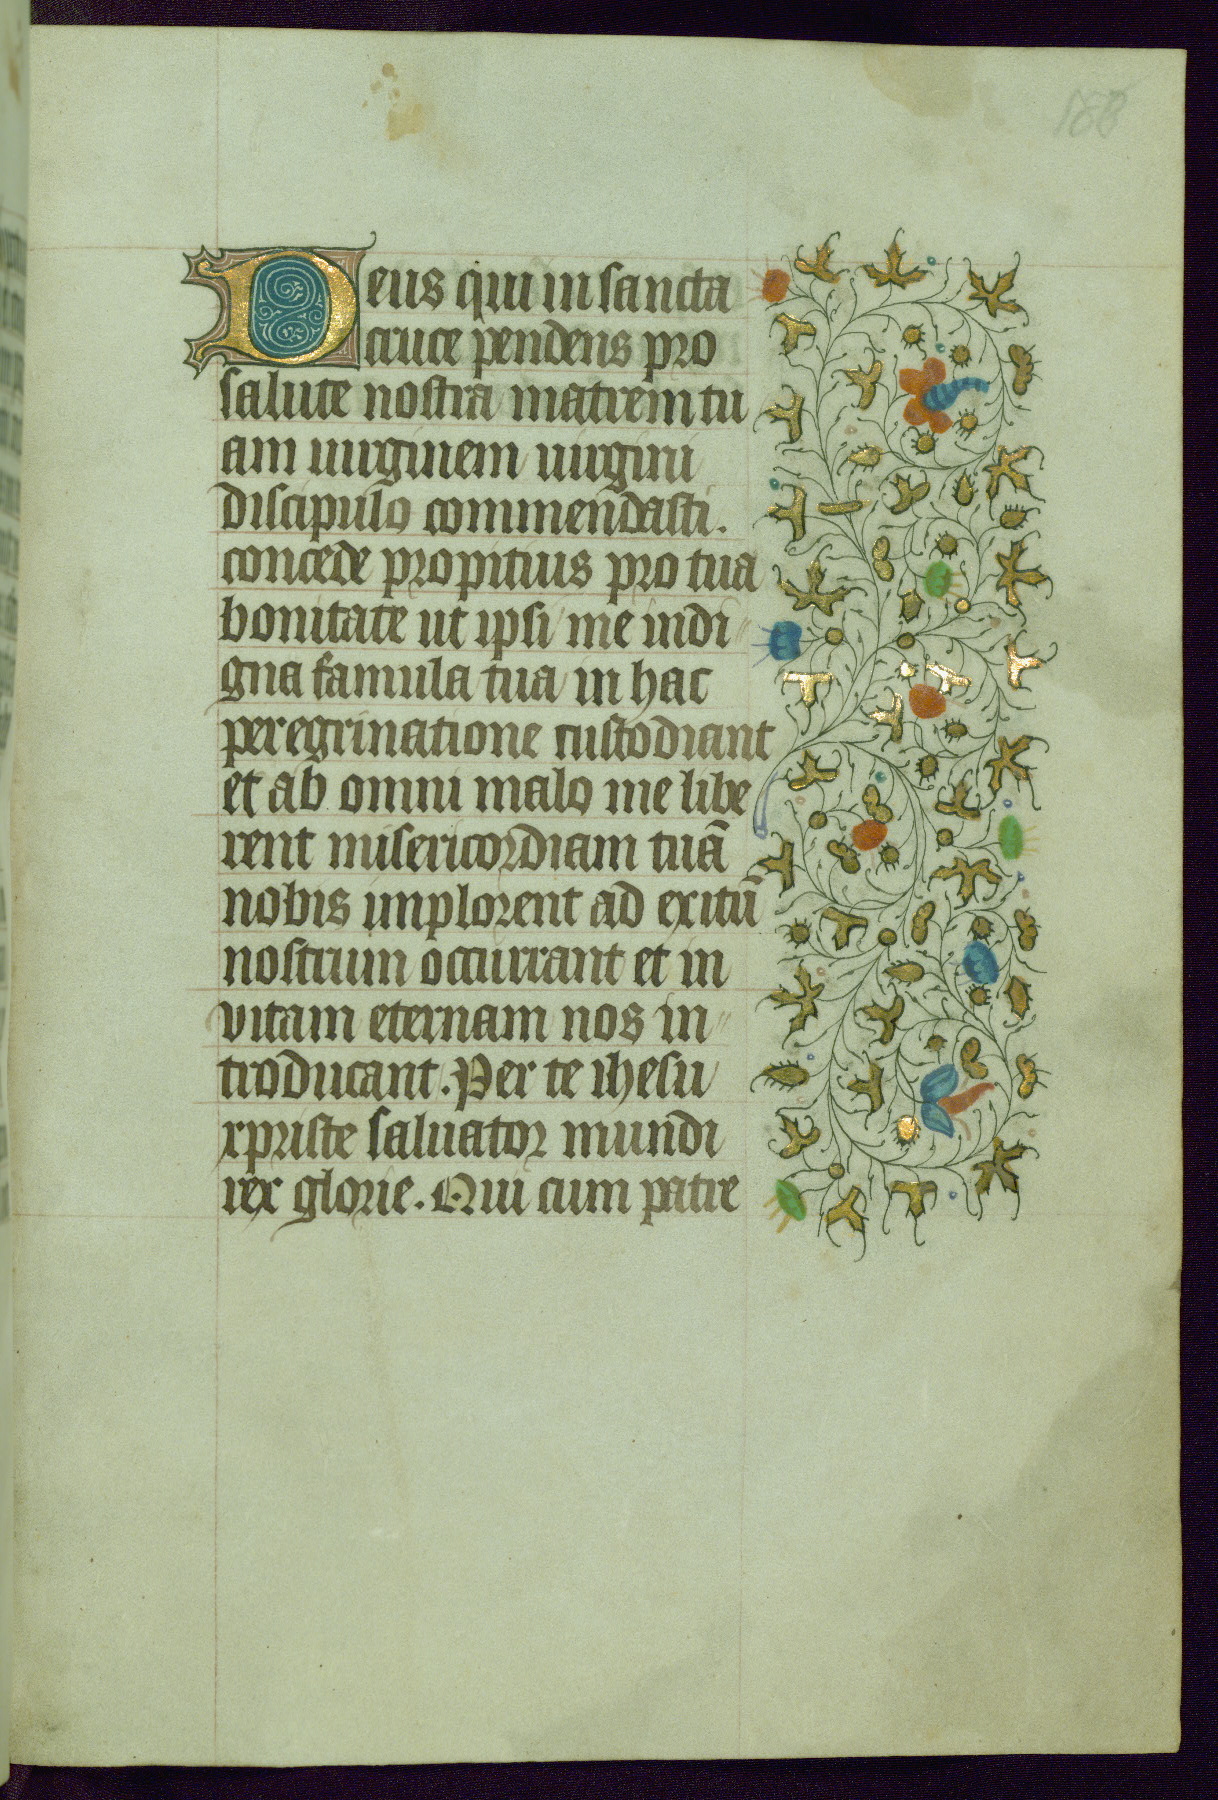 188
Deus qui in sancta
cruce pendens pro
salute nostra matrem tu
am uirginem uirgini
discipulo commendasti.
concede propitius pro tua
bonitate ut ipsi me indi
gna famula tua in hac
peregrinatione custodiant
et ab omni malo me libe
rent misericordiam tuā
nobis implorent ad exitū
nostrum occurrant et in
vitam eternam nos in
troducant. Per te ihesu
xpriste saluator mundi
rex glorie. Qui cum patre